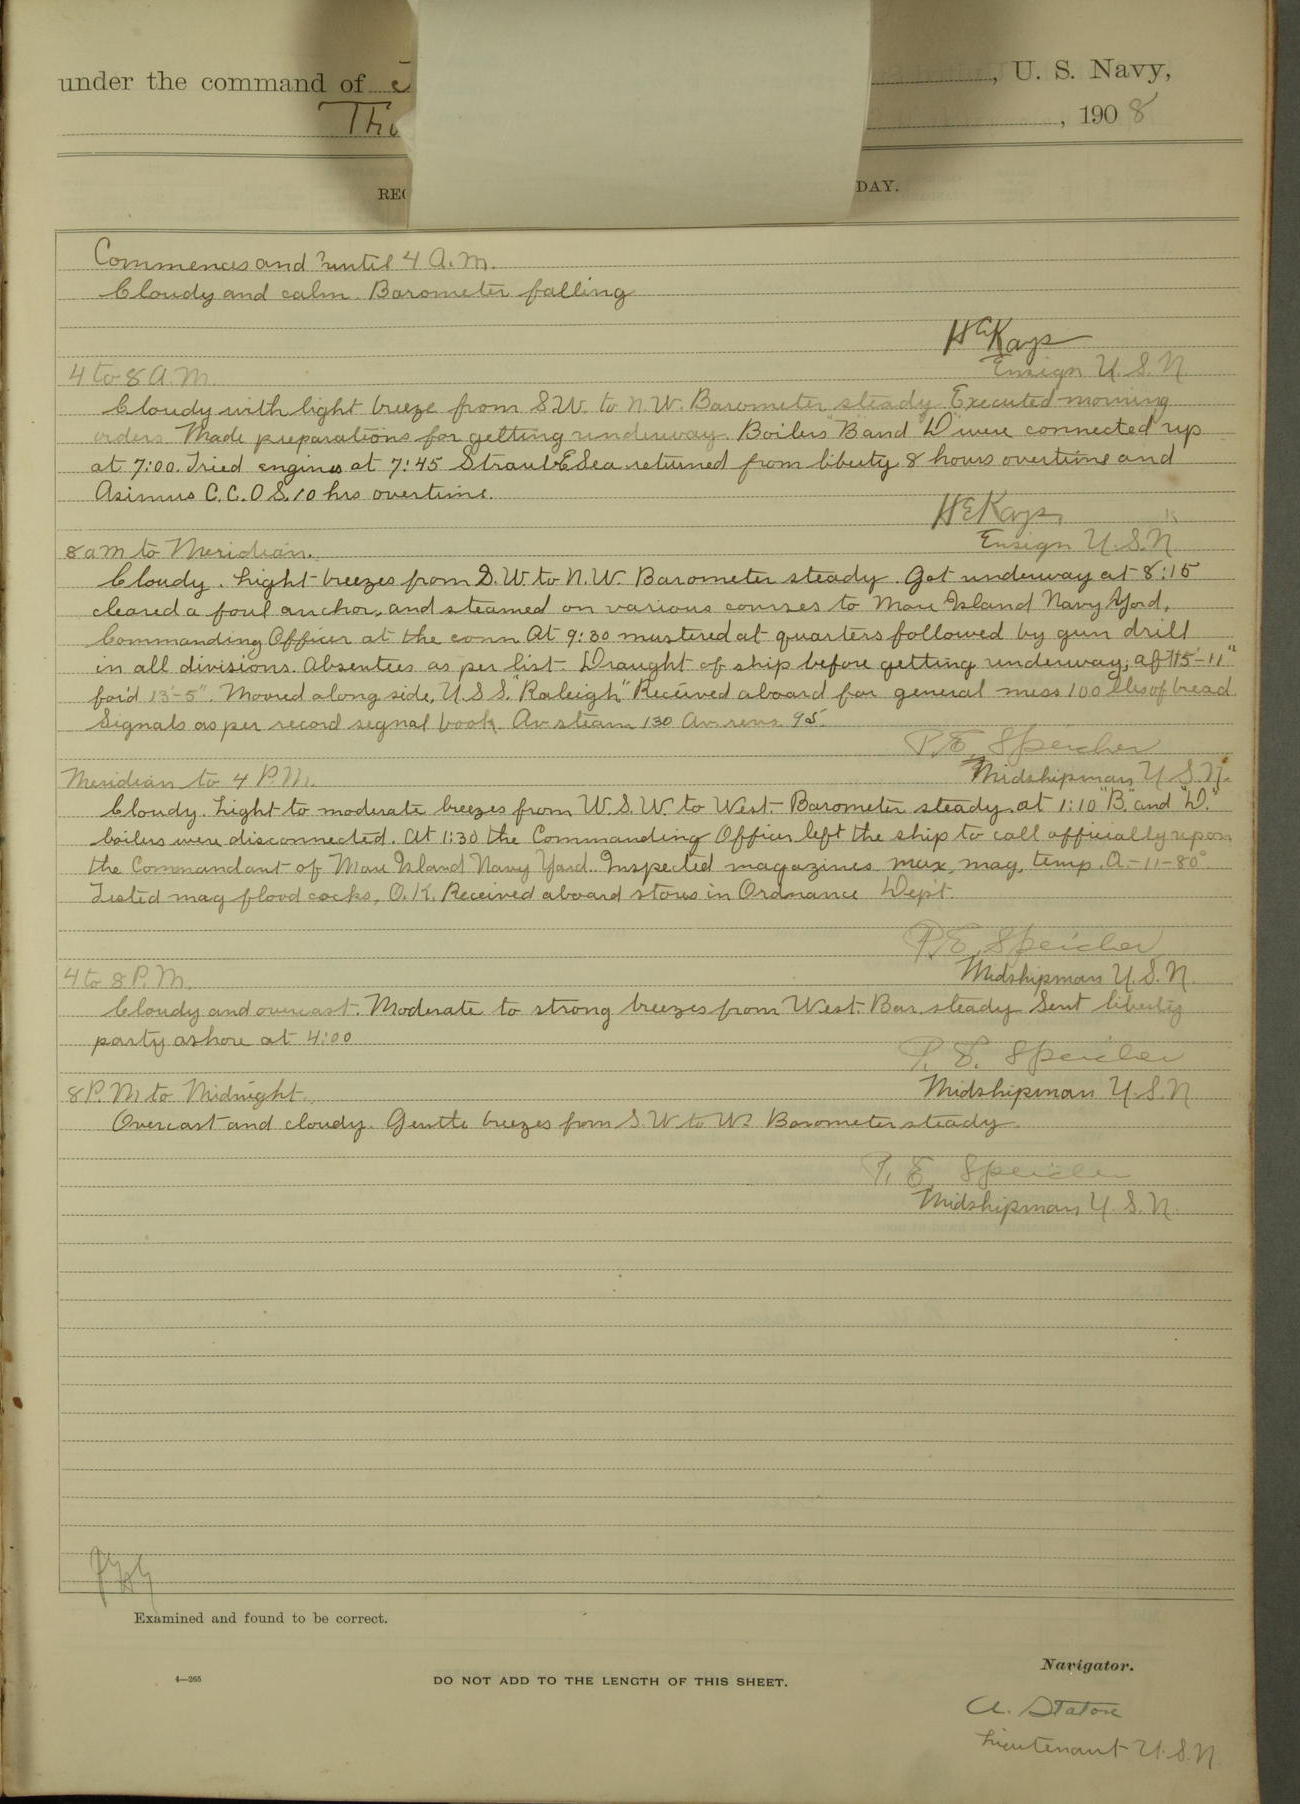 under the command of , U. S. Navy,
, 1908
DAY.
Commences and until 4 A.M.
Cloudy and calm. Barometer falling
H E Kays
Ensign U.S.N.
4 to 8 A.M.
Cloudy with light breeze from S.W. to N.W. Barometer steady Executed morning
orders. Made preparations for getting underway. Boilers "B" and "D" were connected up
at 7:00. Tried engines at 7:45 returned from liberty 8 hours overtime and
Asimus C.C. O.S. 10 hrs overtime.
H E Kays
Ensign U.S.N.
8 am to Meridian.
Cloudy. Light breezes from S.W. to N.W. Barometer steady. Got underway at 8:15
cleared a foul anchor, and steamed on various courses to Mare Island Navy Yard,
Commanding Officer at the conn At 9:30 mustered at quarters followed by gun drill
in all divisions. Absentees as per list Draught of ship before getting underway; aft 15'-11"
for'd 13'-5". Moored along side, U.S.S. "Raleigh" Received aboard for general mess 100 lbs of bread
Signals as per record signal book. Av. steam 130 Av. revs. 95.
P.E. Speicher
Midshipman U.S.N.
Meridian to 4 P.M.
Cloudy. Light to moderate breezes from W.S.W. to West. Barometer steady. at 1:10 "B" and "D"
boilers were disconnected. At 1:30 the Commanding Officer left the ship to call officially upon
the Commandant of Mare Island Navy Yard. Inspected magazines max, mag, temp. A-11-80°
Tested mag flood cocks, O.K. Received aboard stores in Ordnance Dept.
P.E. Speicher
Midshipman U.S.N.
4 to 8 P.M.
Cloudy and overcast. Moderate to strong breezes from West. Bar. steady Sent liberty
party ashore at 4:00
P.E. Speicher
Midshipman U.S.N
8 P.M to Midnight.
Overcast and cloudy. Gentle breezes from S.W to W. Barometer steady.
P. E. Speicher
Midshipman U.S.N.
Examined and found to be correct.
Navigator.
4—265
DO NOT ADD TO THE LENGTH OF THIS SHEET.
A. Staton
Lieutenant U.S.N